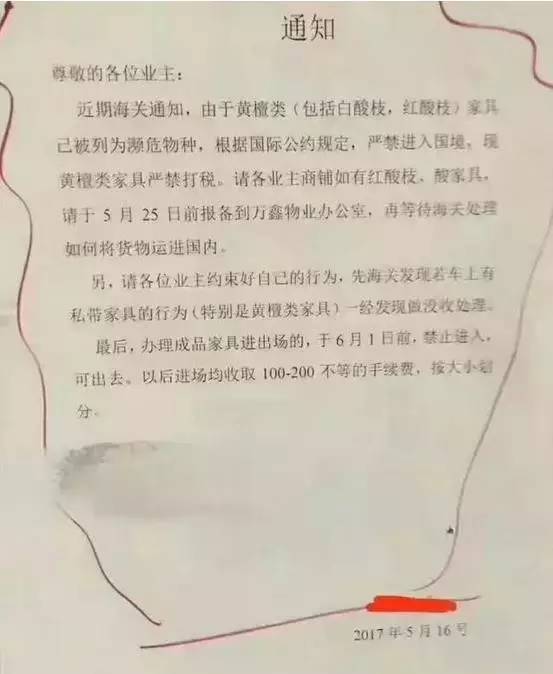 通知
尊敬的各位业主：
近期海关通知，由于黄檀类（包括白酸枝，红酸枝）家具
已被列为濒危物种，根据国际公约规定，严禁进入国境，现
黄檀类家具严禁打税。请各业主商铺如有红酸枝、酸家具，
请于 5 月 25 日前报备到万鑫物业办公室，再等待海关处理
如何将货物运进国内。
另，请各位业主约束好自己的行为，先海关发现若车上有
私带家具的行为（特别是黄檀类家具）一经发现做没收处理。
最后，办理成品家具进出场的，于 6 月 1 日前，禁止进入，
可出去。以后进场均收取 100-200 不等的手续费，按大小划
分。
2017 年 5 月 16 号